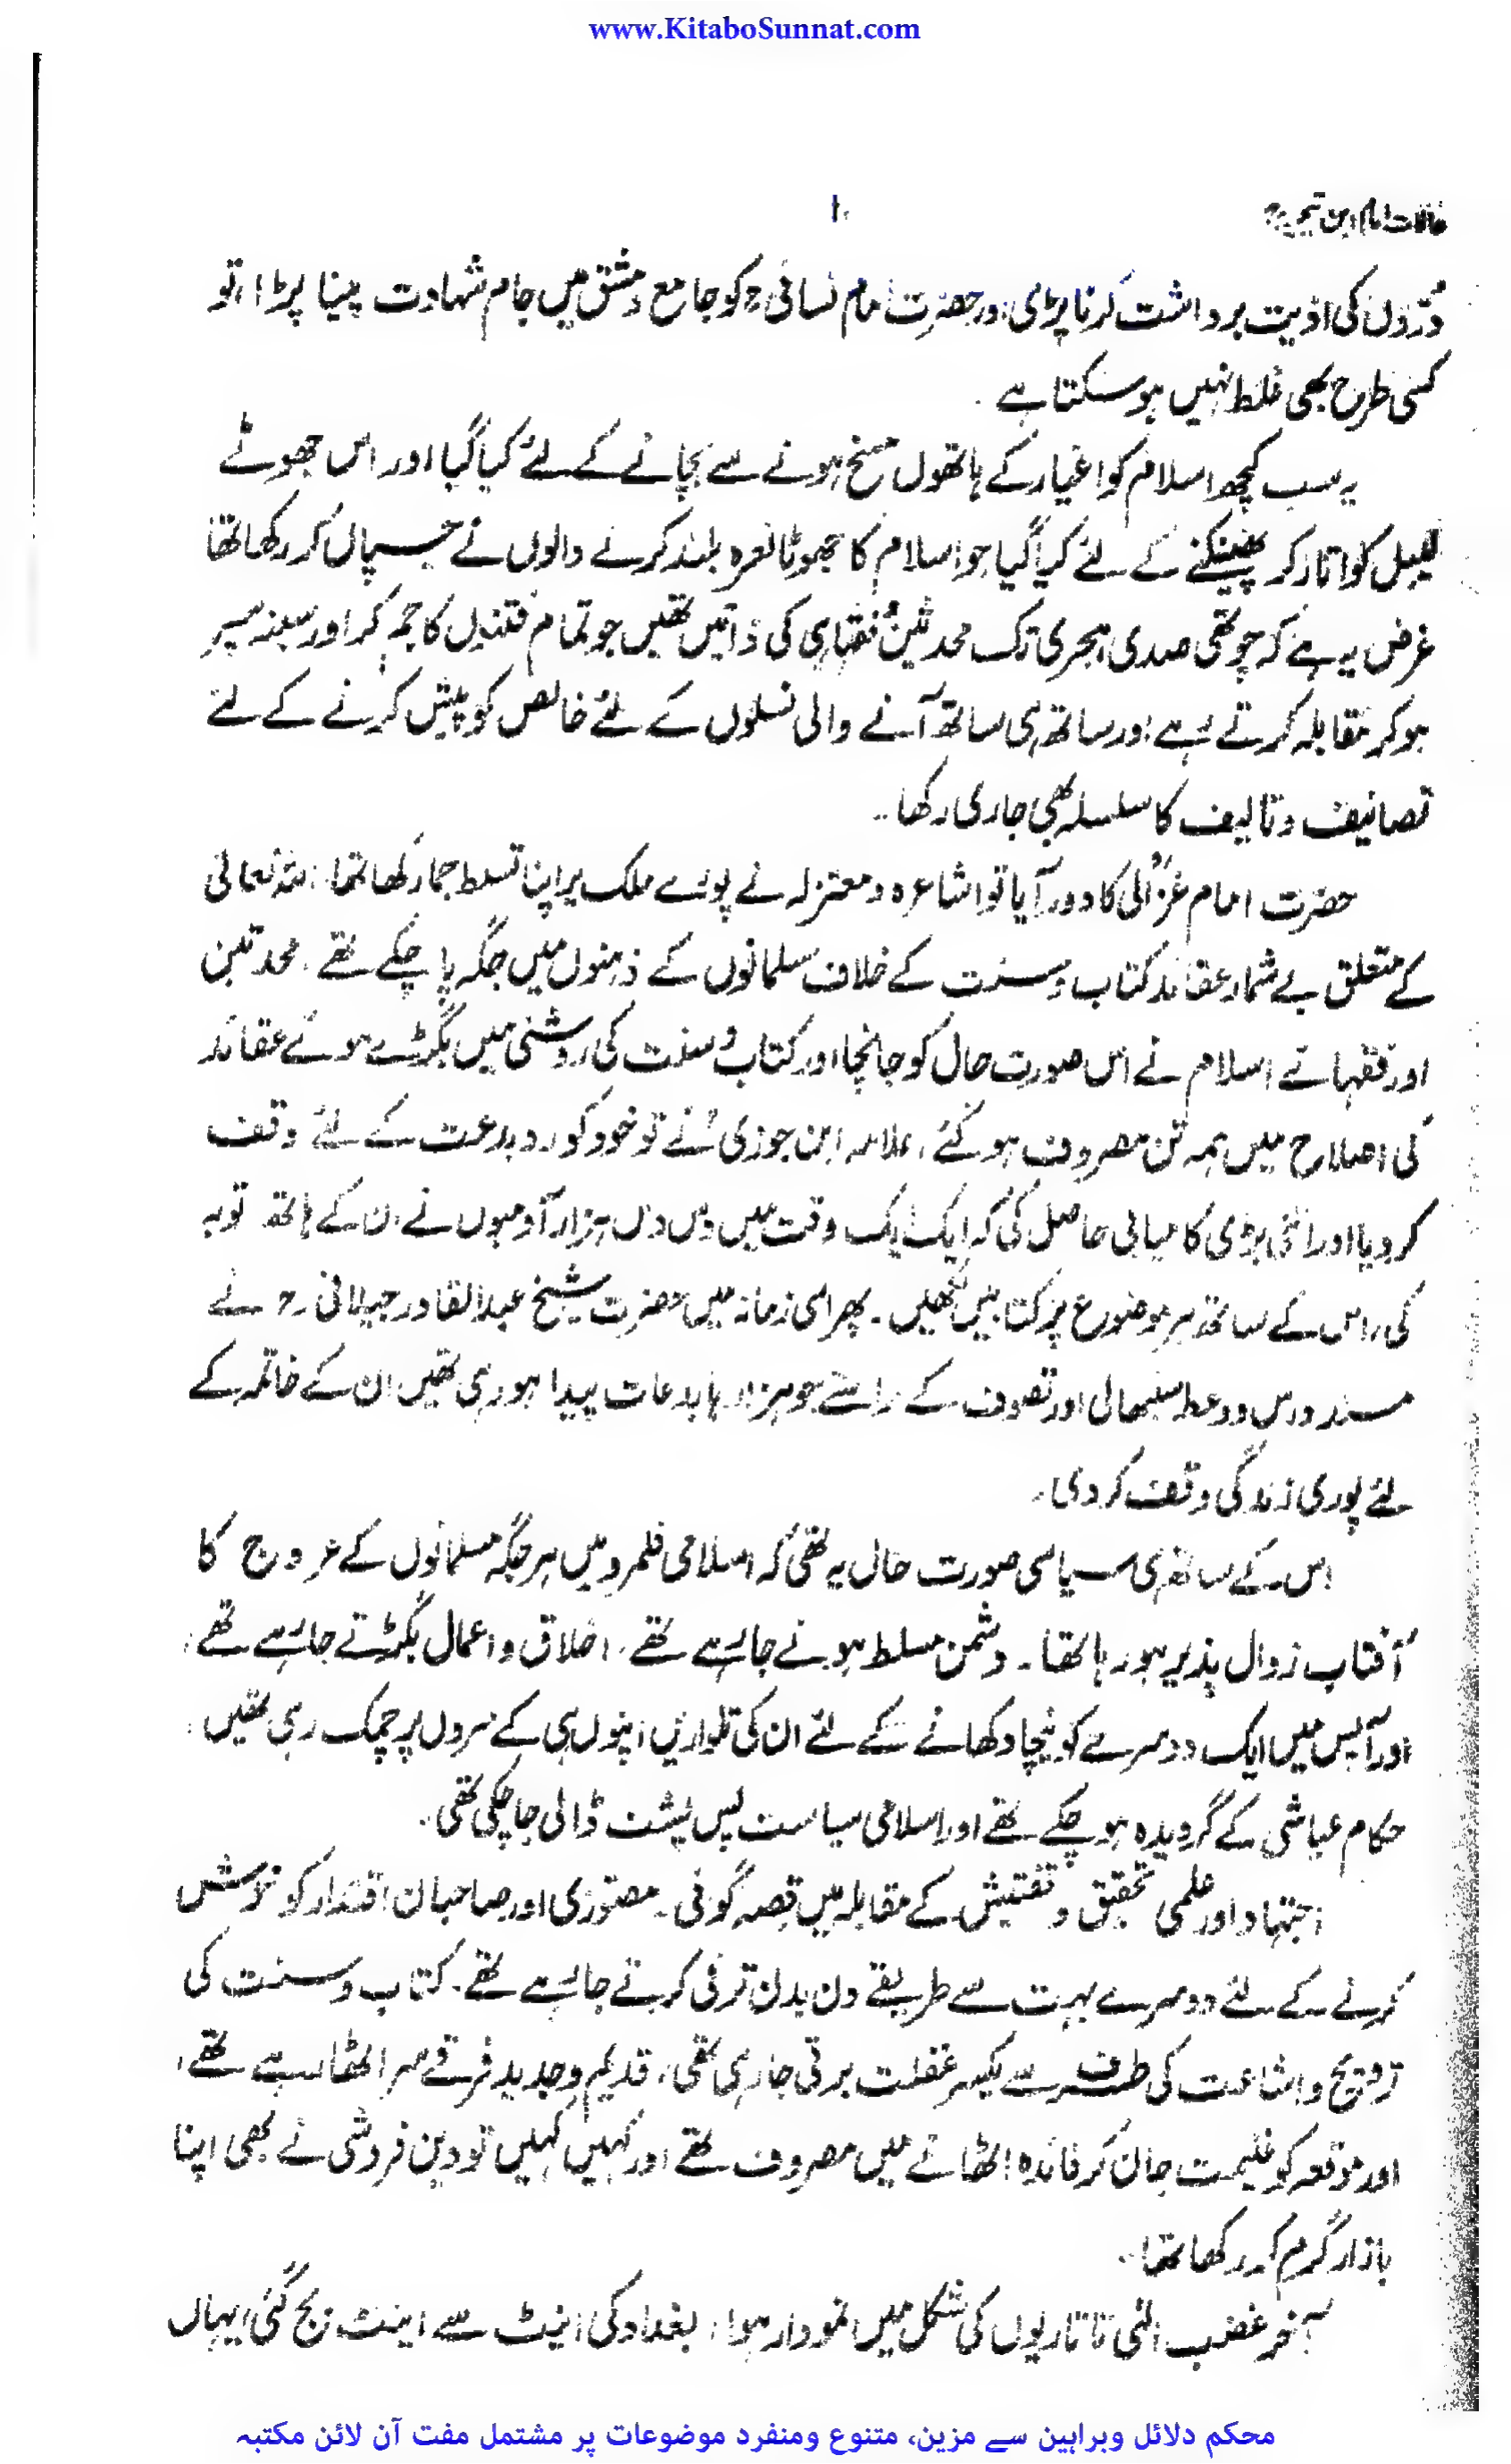 www.KitaboSunnat.com
حالات امام ابن تیمیہؒ
۱۰
دُرّوں کی اذیت برداشت کرنا پڑی اور حضرت امام نسائیؒ کو جامع دمشق میں جام شہادت پینا پڑا، تو
کسی طرح بھی غلط نہیں ہو سکتا ہے ۔
یہ سب کچھ اسلام کو اغیار کے ہاتھوں مسخ ہونے سے بچانے کے لئے کیا گیا اور اس جھوٹے
لیبل کو اتار کر پھینکنے کے لئے کیا گیا جو اسلام کا جھوٹا نعرہ بلند کرنے والوں نے چسپاں کر رکھا تھا
غرض یہ ہے کہ چوتھی صدی ہجری تک محدثین و فقہا ہی کی ذاتیں تھیں جو تمام فتنوں کا جم کر اور سینہ سپر
ہو کر مقابلہ کرتے رہے اور ساتھ ہی ساتھ آنے والی نسلوں کے لئے خالص کو پیش کرنے کے لئے
تصانیف و تالیف کا سلسلہ بھی جاری رکھا ۔
حضرت امام غزالیؒ کا دور آیا تو اشاعرہ و معتزلہ نے پورے ملک پر اپنا تسلط جما رکھا تھا، اللہ تعالی
کے متعلق بے شمار عقائد کتاب و سنت کے خلاف مسلمانوں کے ذہنوں میں جگہ پا چکے تھے، محدثین
اور فقہائے اسلام نے اس صورت حال کو جانچا اور کتاب و سنت کی روشنی میں بگڑے ہوئے عقائد
کی اصلاح میں ہمہ تن مصروف ہو گئے، علامہ ابن جوزیؒ نے تو خود کو رد بدعت کے لئے وقف
کر دیا اور اتنی بڑی کامیابی حاصل کی کہ ایک ایک وقت میں دس دس ہزار آدمیوں نے ان کے ہاتھ توبہ
کی، اس کے ساتھ ہر موضوع پر کتابیں لکھیں ۔ پھر اسی زمانہ میں حضرت شیخ عبدالقادر جیلانیؒ نے
مسند درس و وعظ سنبھالی اور تصوف کے راستے جو ہزارہا بدعات پیدا ہو رہی تھیں ان کے خاتمہ کے
لئے پوری زندگی وقف کر دی ۔
اس کے ساتھ ہی سیاسی صورت حال یہ تھی کہ اسلامی قلمرو میں ہر جگہ مسلمانوں کے عروج کا
آفتاب زوال پذیر ہو رہا تھا ۔ دشمن مسلط ہونے جا رہے تھے، اخلاق و اعمال بگڑتے جا رہے تھے،
اور آپس میں ایک دوسرے کو نیچا دکھانے کے لئے ان کی تلواریں اپنوں ہی کے سروں پر چمک رہی تھیں،
حکام عیاشی کے گرویدہ ہو چکے تھے اور اسلامی سیاست پس پشت ڈالی جا چکی تھی ۔
اجتہاد اور علمی تحقیق و تفتیش کے مقابلہ میں قصہ گوئی ۔ مصوری اور صاحبان اقتدار کو خوش
کرنے کے لئے دوسرے بہت سے طریقے دن بدن ترقی کرتے جا رہے تھے ۔ کتاب و سنت کی
ترویج و اشاعت کی طرف سے یکسر غفلت برتی جا رہی تھی، قدیم و جدید فرقے سر اٹھا رہے تھے،
اور موقعہ کو غنیمت جان کر فائدہ اٹھانے میں مصروف تھے اور کہیں کہیں تو دین فروشی نے بھی اپنا
بازار گرم کر رکھا تھا ۔
آخر غضب الٰہی تاتاریوں کی شکل میں نمودار ہوا، بغداد کی اینٹ سے اینٹ بج گئی، یہاں
محکم دلائل وبراہین سے مزین، متنوع ومنفرد موضوعات پر مشتمل مفت آن لائن مکتبہ